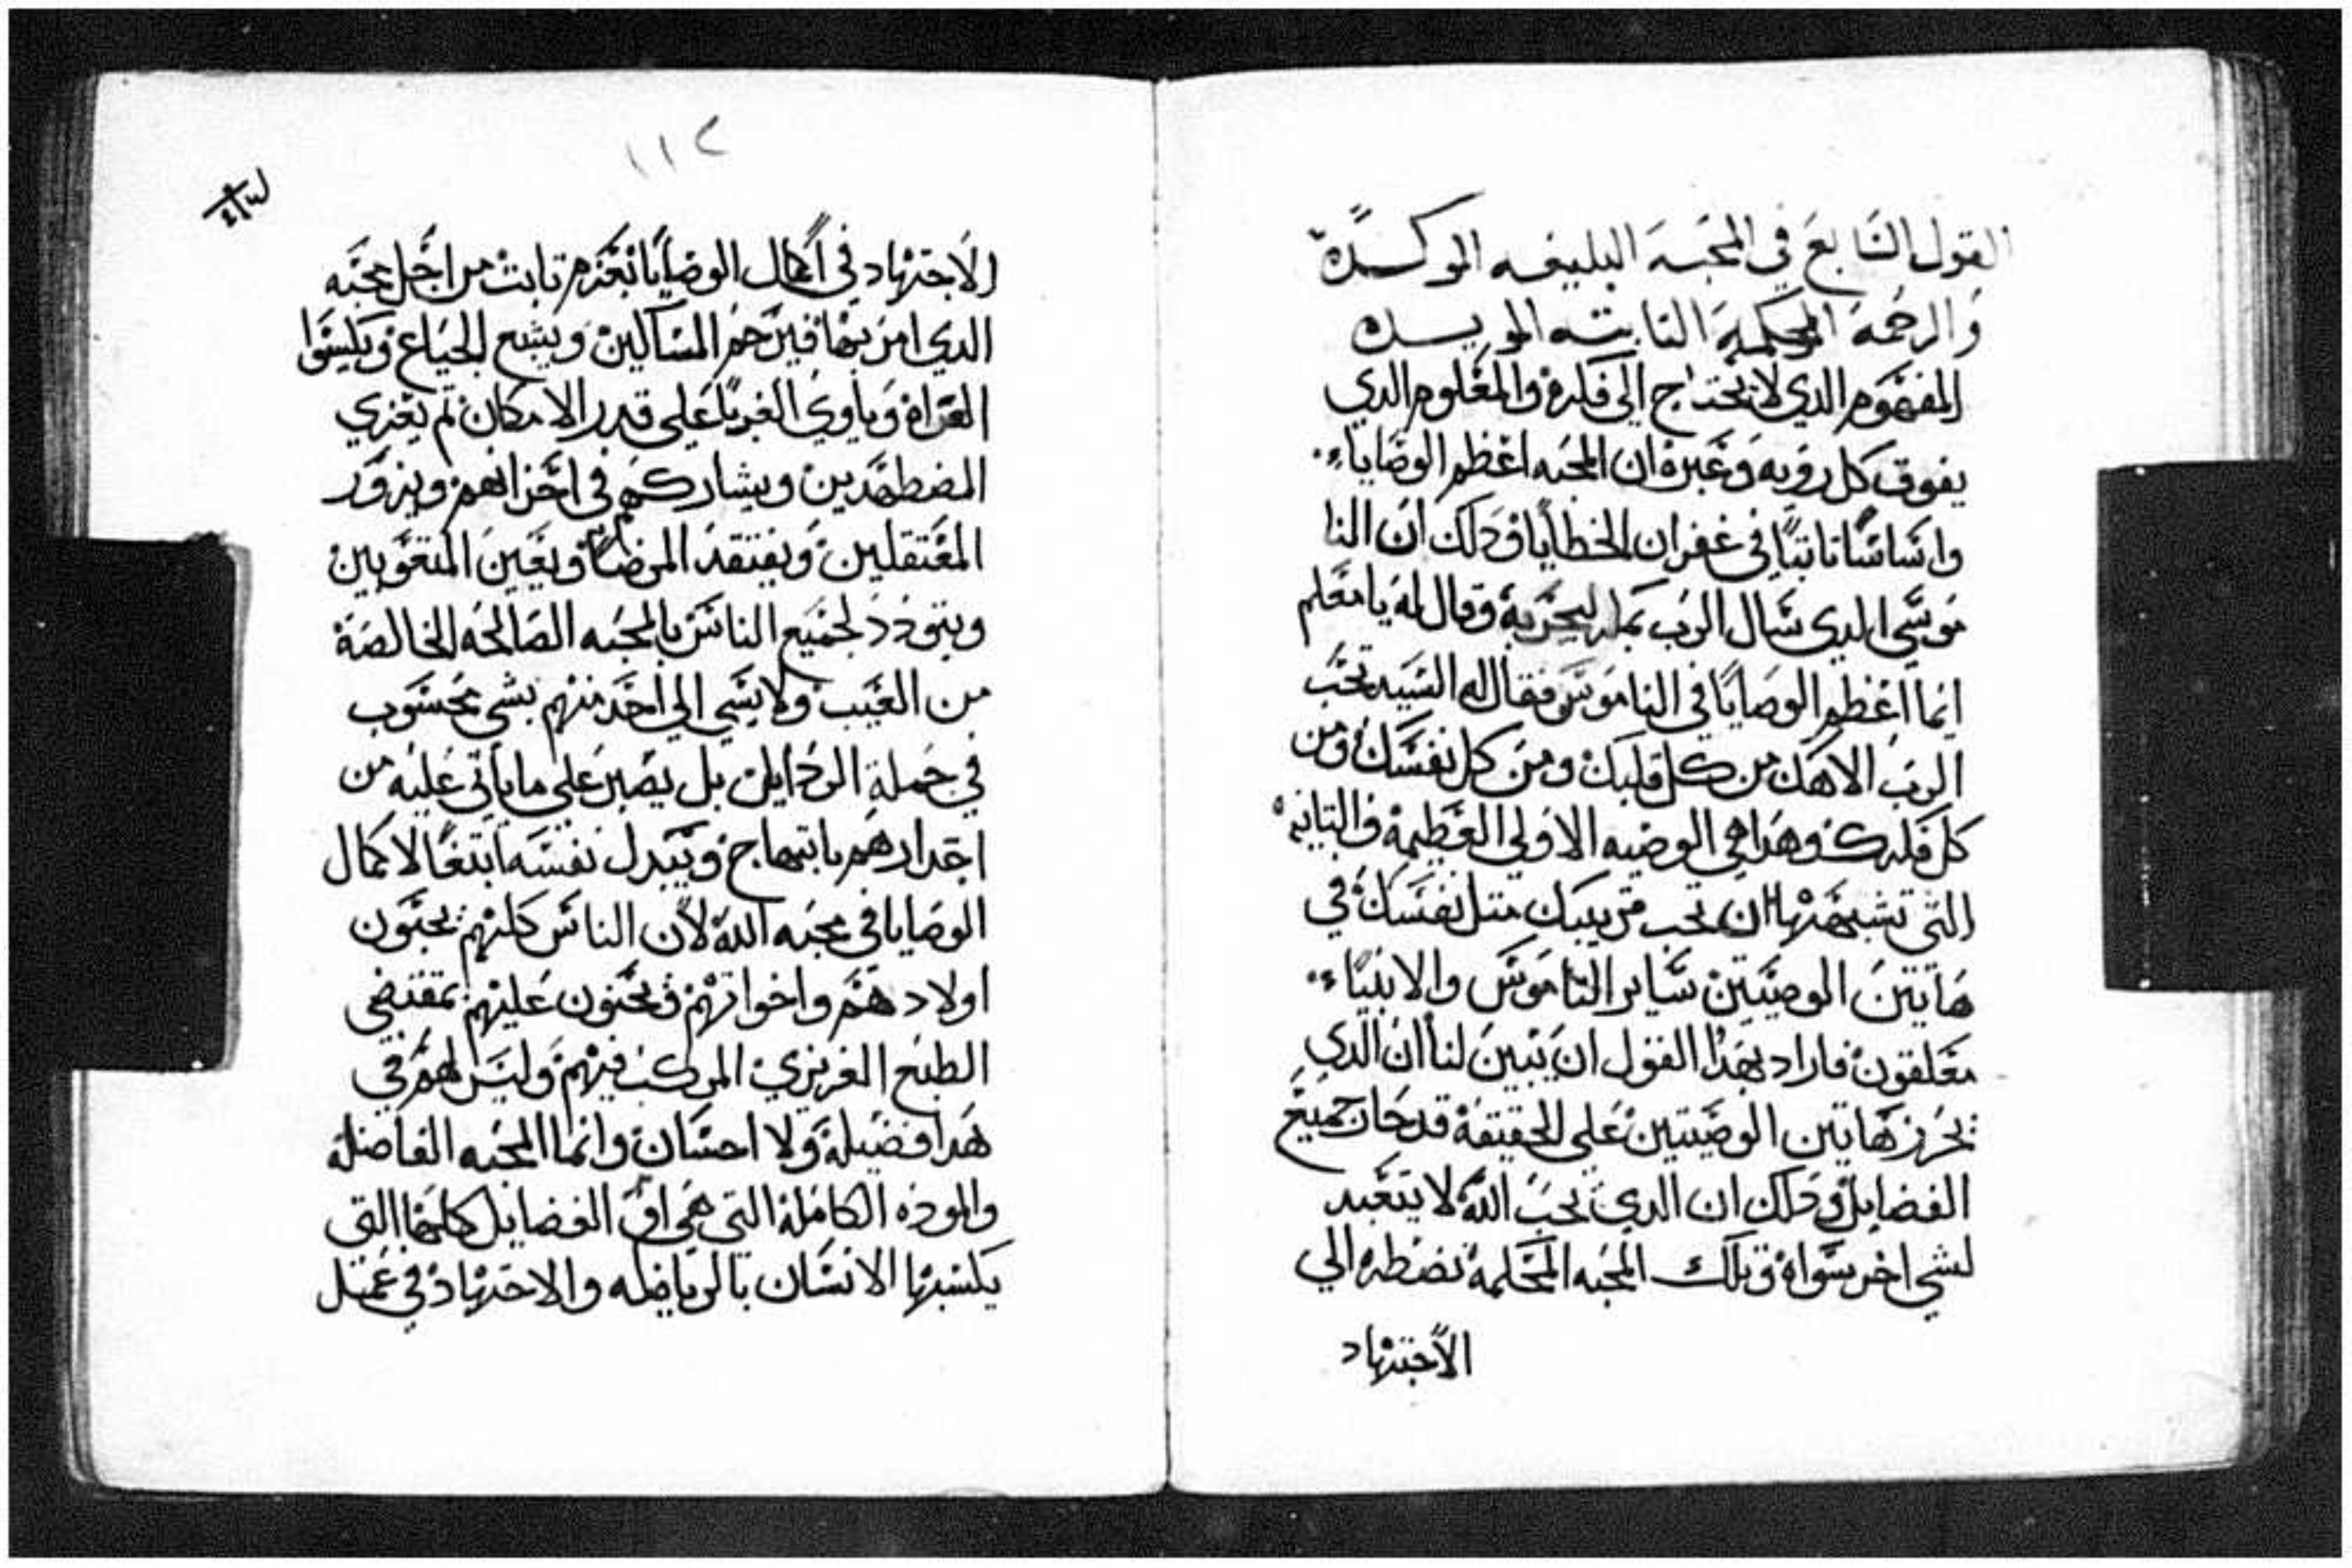 القول السابع في المحبه البليغه الموكده
والرحمه المحكمه الثابته المويده
المفهوم الدي لا يحتاج الي فكره والمعلوم الدي
يفوق كل رويه وعبره ان المحبه اعظم الوصاياء
واساسًا تابتًا في غفران الخطايا ودلك ان النا
موسي الدي سال الرب بمكر ليجربه وقال له يا معلم
ايما اعظم الوصايا في الناموس فقال له السيد تحب
الرب الاهك من كل قلبك ومن كل نفسك ومن
كل فكرك وهدا هي الوصيه الاولي العظيمه والتانيه
التي تشبهها ان تحب قريبك متل نفسك في
هاتين الوصيتين ساير الناموس والانبياء
معلقون فاراد بهدا القول ان يبين لنا ان الدي
يحرز هاتين الوصيتين علي الحقيقة قد حاز جميع
الفضايل ودلك ان الدي يحب الله لا يتعبد
لشي اخر سواه وتلك المحبه المحكمة تضطره الي
الاجتهاد
١١٢
الاجتهاد في اكمال الوصايا بعزم تابت من اجل محبه
الدي امر بها فيرحم المساكين ويشبع الجياع ويكسوا
العراه وياوي الغربا علي قدر الامكان تم يعزي
المضطهدين ويشاركهم في احزانهم ويزور
المعتقلين ويفتقد المرضا ويعين المتعوبين
ويتودد لجميع الناس بالمحبه الصالحه الخالصة
من العيب ولا يسي الي احد منهم بشي محسوب
في جملة الردايل بل يصبر علي ما ياتي عليه من
اضرارهم بابتهاج ويبدل نفسه ابتغا لاكمال
الوصايا في محبه الله لان الناس كلهم يحبون
اولادهم واخواتهم ويحنون عليهم بمقتضي
الطبع الغريزي المركب فيهم وليس لهم في
هدا فضيلة ولا احسان وانما المحبه الفاضلة
والموده الكاملة التي هي افق الفضايل كلها التي
يكسبها الانسان بالرياضه والاجتهاد في عمل